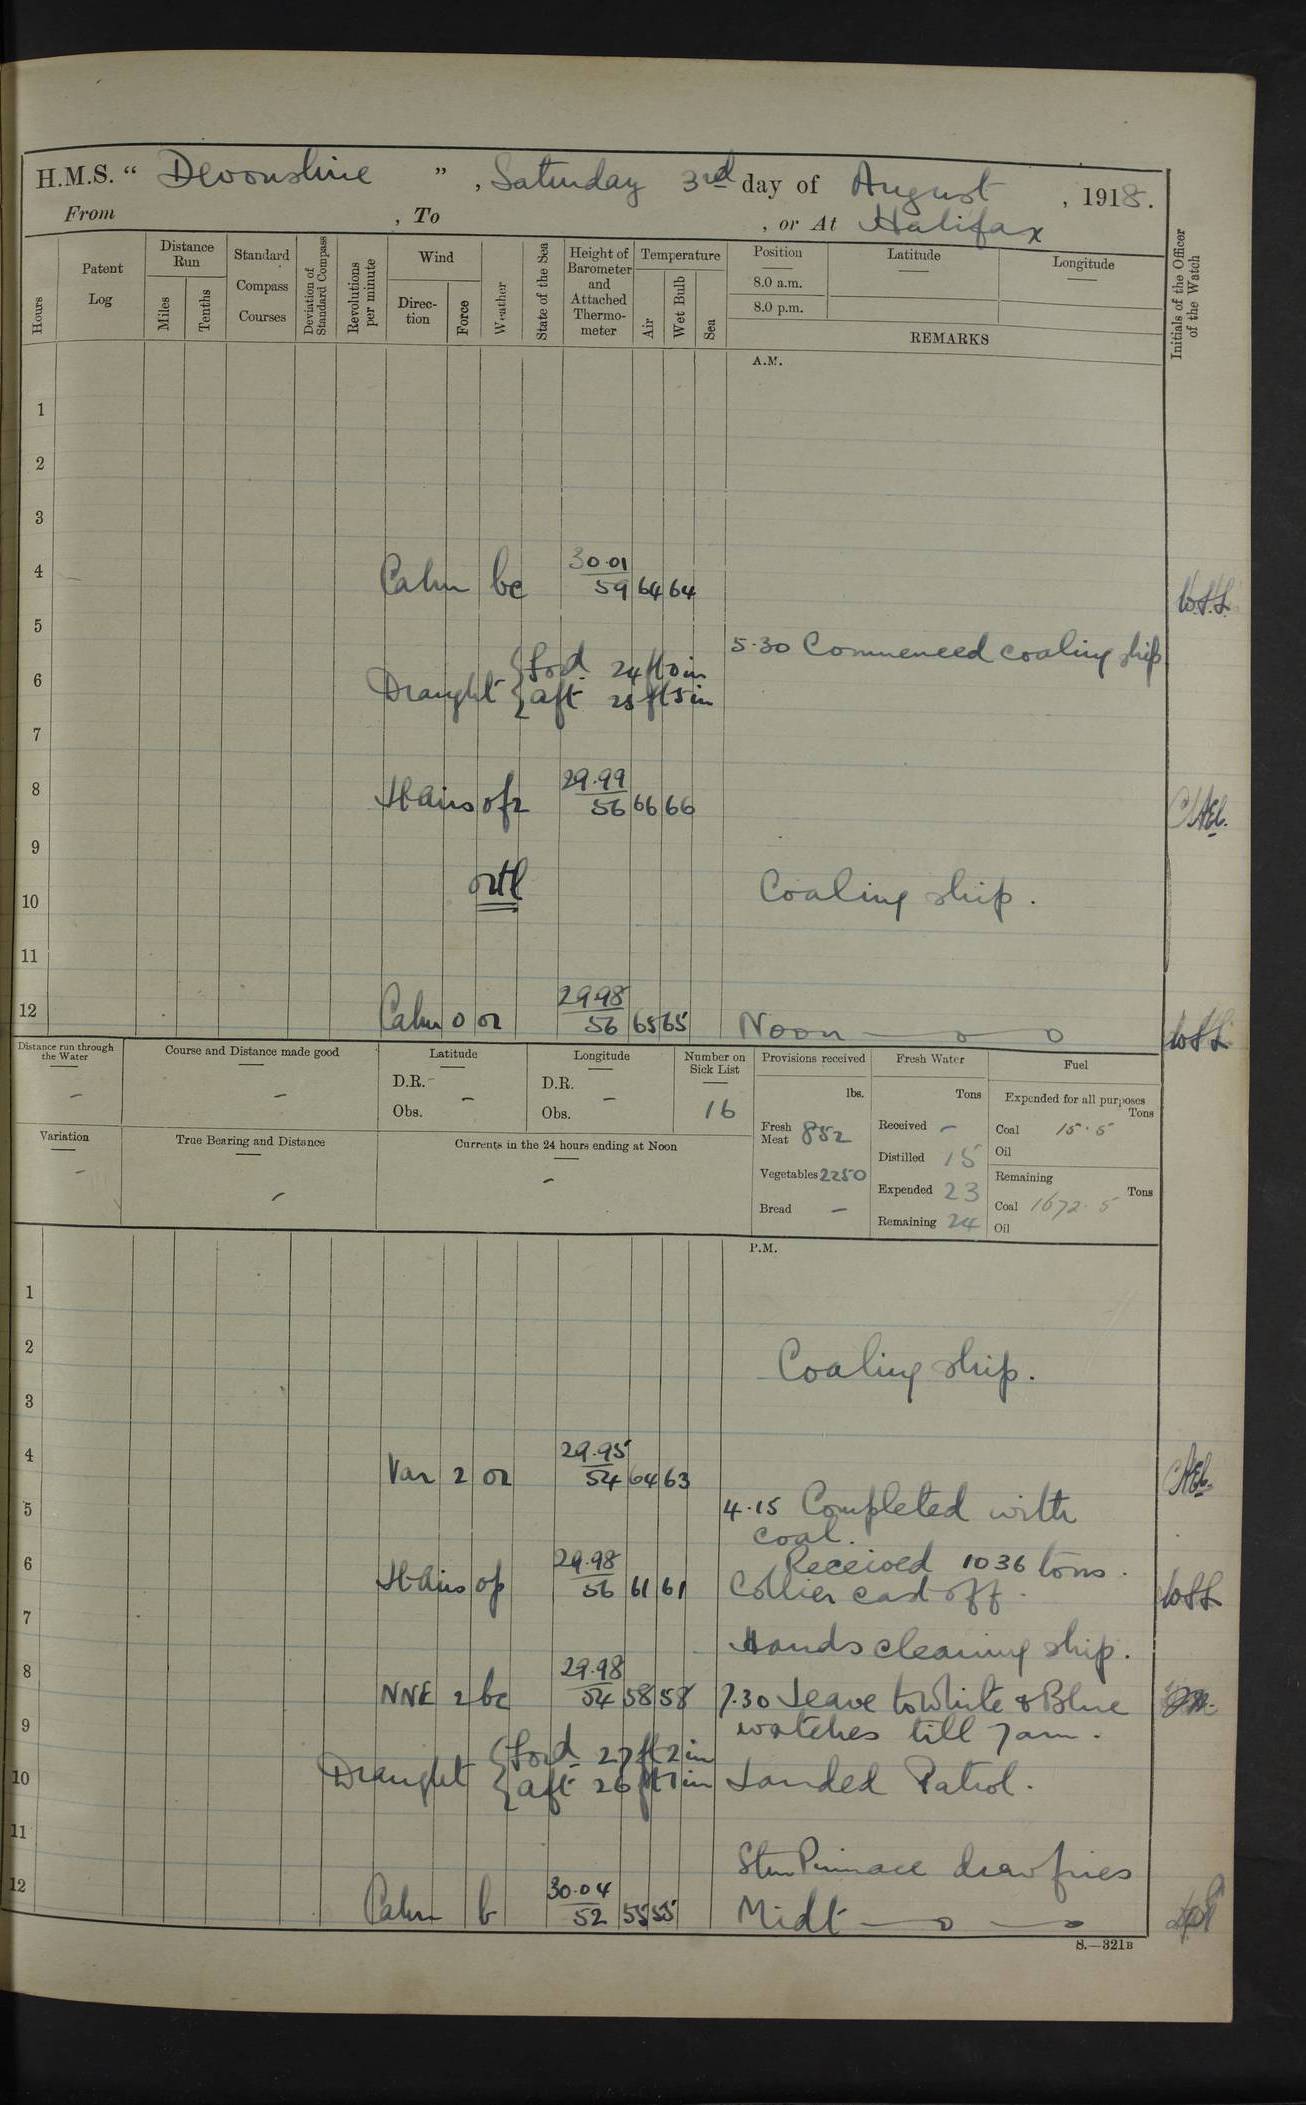 H.M.S. “ Devonshire ” , Saturday 3rd day of August , 1918.
From , To , or At Halifax
Hours
Patent Log
Distance Run
Miles
Tenths
Standard Compass Courses
Deviation of Standard Compass
Revolutions per minute
Wind
Direc-tion
Force
Weather
State of the Sea
Height of Barometer and Attached Thermo-meter
Temperature
Air
Wet Bulb
Sea
Position
8.0 a.m.
8.0 p.m.
Latitude
Longitude
REMARKS
Initials of the Officer of the Watch
A.M.
1
2
3
4 Calm bc 30.01 59 64 64
5
5.30 Commenced coaling ship
6 Draught { ford. 24 ft 0 in
{ aft 25 ft 5 in
7
8 Lt Airs 29.99 56 66 66
9
10 Coaling ship.
11
12 Calm 0 or 29.98 56 65 65 Noon
Distance run through the Water
-
Course and Distance made good
-
Latitude
D.R. -
Obs.
Longitude
D.R. -
Obs.
Number on Sick List
16
Provisions received
lbs.
Fresh Meat 852
Vegetables 2250
Bread -
Fresh Water
Tons
Received -
Distilled 15
Expended 23
Remaining 24
Fuel
Expended for all purposes
Tons
Coal 15.5
Oil
Remaining
Tons
Coal 1672.5
Oil
Variation
-
True Bearing and Distance
-
Currents in the 24 hours ending at Noon
-
P.M.
1
2 Coaling ship.
3
4 Var 2 or 29.95 54 64 63
5 4.15 Completed with
coal.
Received 1036 tons.
6 Lt Airs op 29.98 56 61 61 Collier cast off.
7
Hands cleaning ship.
8 NNE 2 bc 29.98 54 58 58 7.30 Leave to White & Blue
9 watches till 7 am.
10 Draught { ford. 27 ft 2 in
{ aft 26 ft 1 in Landed Patrol.
11
Stm Pinnace draw fires
12 Calm b 30.04 52 55 55 Midt
S.—321B